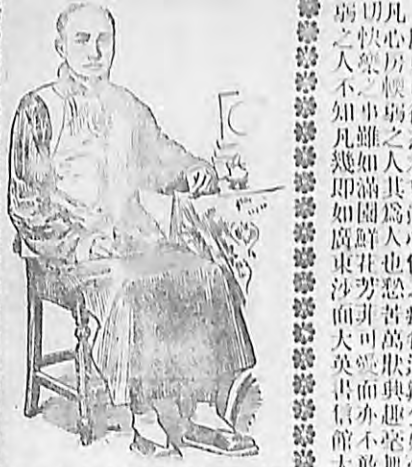 凡心房輭弱之人其為人也愁苦萬狀興趣毫無
切快樂之事雖如滿園鮮花芳菲可愛而亦不敢
弱之人不知凡幾即如廣東沙面大英書信館大